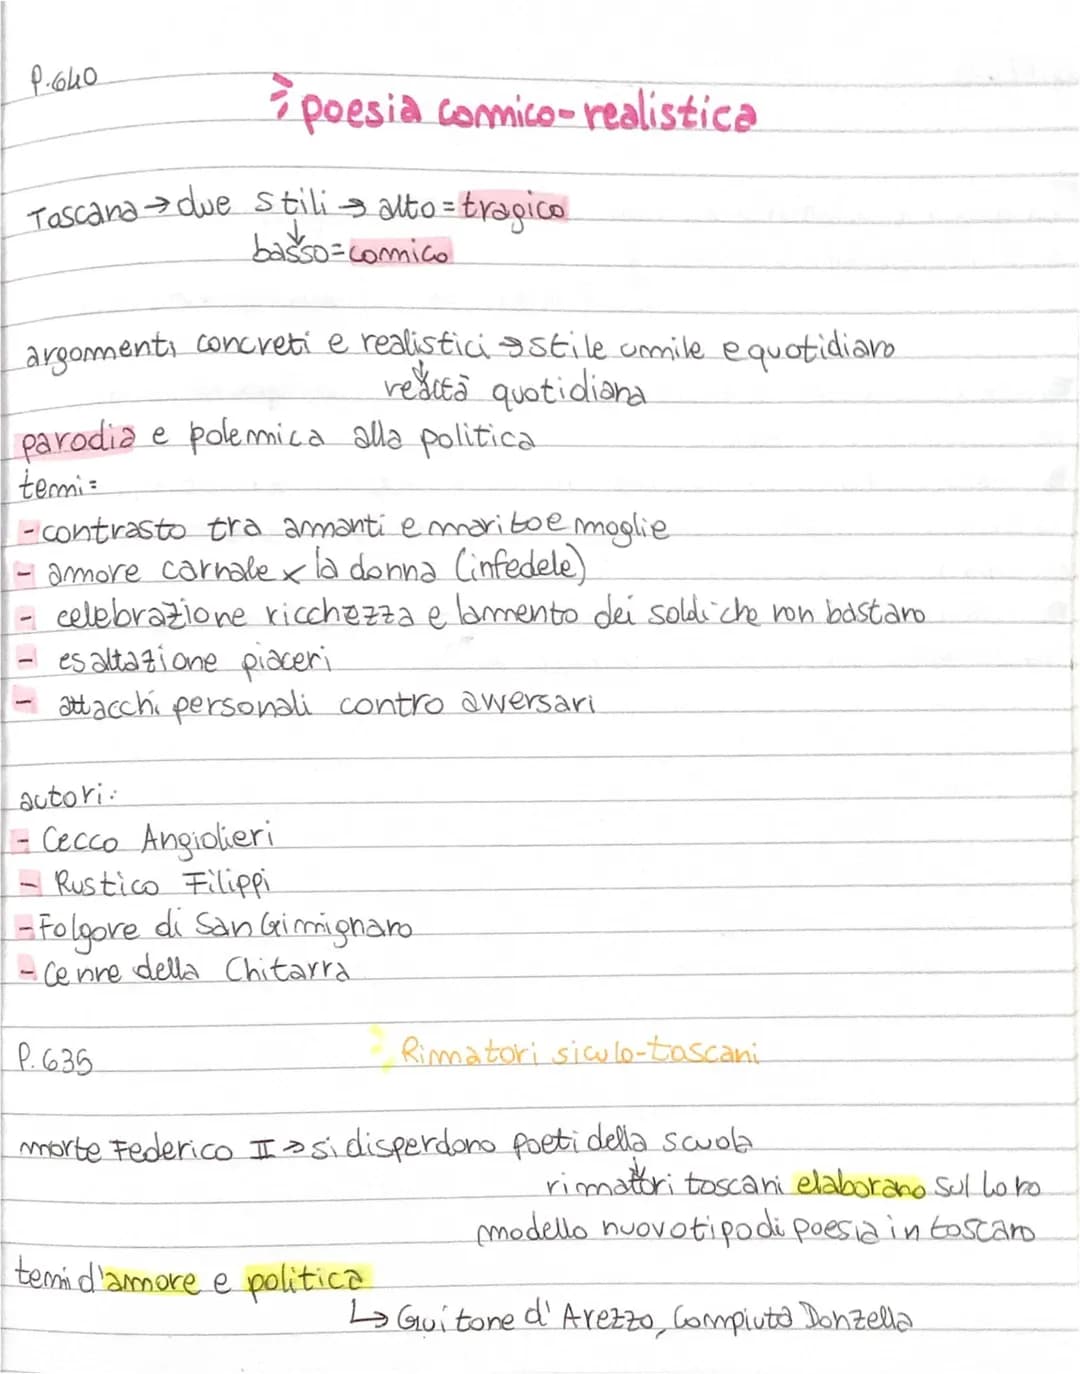 P.640
poesia comico-realistica
Toscana → due stili → alto = tragico
↓
basso = comico
argomenti concreti e realistici → stile umile e quotidiano
↓
realtà quotidiana
parodia e polemica alla politica
temi =
- contrasto tra amanti e marito e moglie
- amore carnale x la donna (infedele)
- celebrazione ricchezza e lamento dei soldi che non bastano
- esaltazione piaceri
- attacchi personali contro avversari
autori:
- Cecco Angiolieri
- Rustico Filippi
- Folgore di San Gimignano
- Cenne della Chitarra
P.635
Rimatori siculo-toscani
morte Federico II → si disperdono poeti della scuola
↓
rimatori toscani elaborano sul loro
modello nuovo tipo di poesia in toscano
temi d'amore e politica
↳ Guitone d'Arezzo, Compiuta Donzella